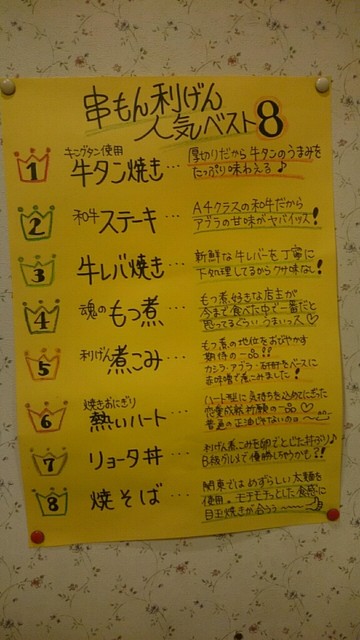 串もん利げん
人気ベスト8
1
キングタン使用
牛タン焼き…
厚切りだから牛タンのうまみを
たっぷり味わえる♪
2
和牛ステーキ…
A4クラスの和牛だから
アブラの甘味がヤバイッス!
3
牛レバ焼き…
新鮮な牛レバーを丁寧に
下処理してるからクサ味なし!
4
魂のもつ煮…
もつ煮好きな店主が
今まで食べた中で一番だと
思ってるぐらいうまいっス♡
5
利げん煮こみ…
もつ煮の地位をおびやかす
期待の一品!!
カシラ・アブラ・をベースに
赤味噌で煮こみました!
6
焼きおにぎり
熱いハート…
ハート型に気持ちを込めてにぎった
恋愛成就祈願の一品♡
普通の正油じゃないのよ
7
リョータ丼…
利げん煮こみを卵でとじた丼ぶり♪
B級グルメで優勝しちゃうかも?!
8
焼そば…
関東ではめずらしい太麺を
使用。モチモチッとした食感に
目玉焼きが合うぅ〜